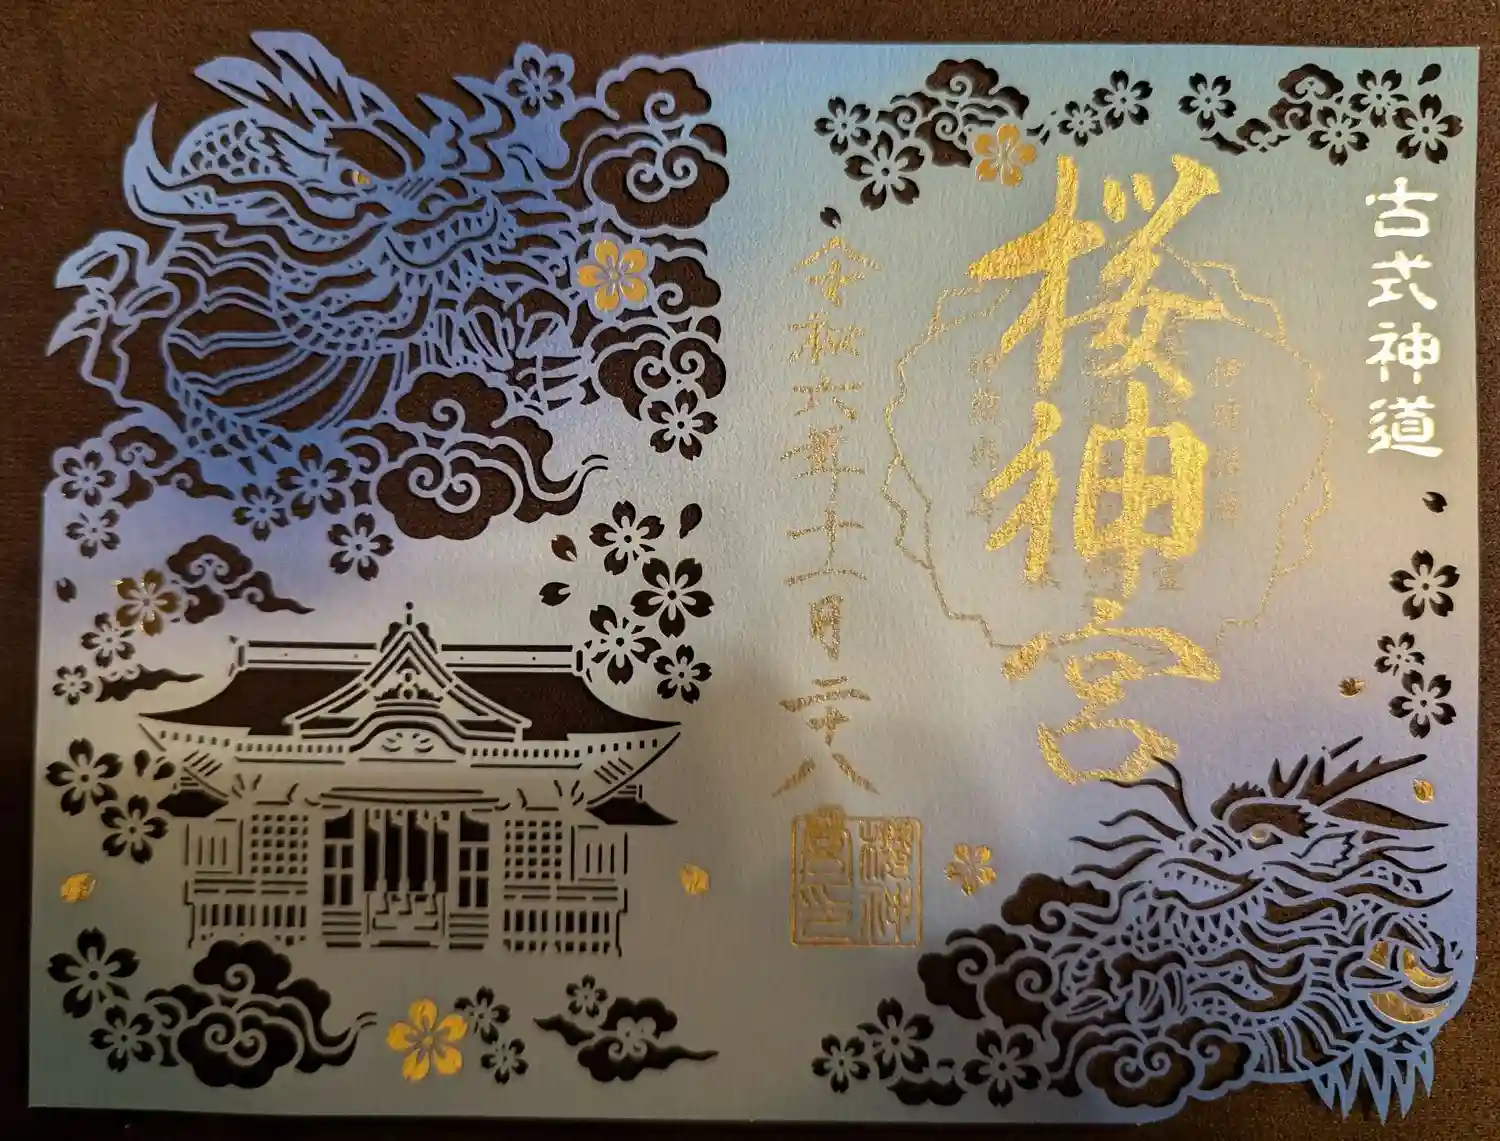 古式神道
桜神宮
令和六年十一月二十八
櫻神宮印